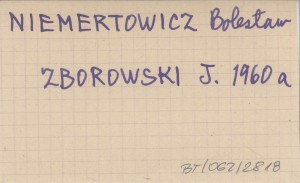 NIEMERTOWICZ Bolesław
ZBOROWSKI J. 1960a
BT/067/2818